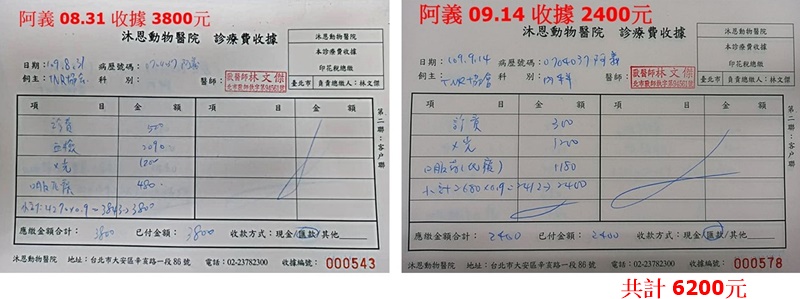 阿義 08.31 收據 3800元
沐恩動物醫院 診療費收據
本診療費收據
印花稅總繳
臺北市 負責總繳人：林文傑
日期：109.8.31 病歷號碼：0704037 阿義
飼主：TNR協會 醫師：獸醫師林文傑
項 目 金 額 項 目 金 額
診費 500
血檢 2090
X光 1200
口服 480
小計：4270×0.9=3843→3800
應繳金額合計：3800 已付金額：3800 收款方式：現金/匯款/其他
第二聯：客戶聯
沐恩動物醫院 地址：台北市大安區辛亥路一段86號 電話：02-23782300 收據編號：000543
阿義 09.14 收據 2400元
沐恩動物醫院 診療費收據
本診療費收據
印花稅總繳
臺北市 負責總繳人：林文傑
日期：109.9.14 病歷號碼：0704037 阿義
飼主：TNR協會 科別：內科 醫師：獸醫師林文傑
項 目 金 額 項 目 金 額
診費 300
X光 1200
口服藥 1180
小計 2680×0.9=2412→2400
應繳金額合計：2400 已付金額：2400 收款方式：現金/匯款/其他
第二聯：客戶聯
沐恩動物醫院 地址：台北市大安區辛亥路一段86號 電話：02-23782300 收據編號：000578
共計 6200元